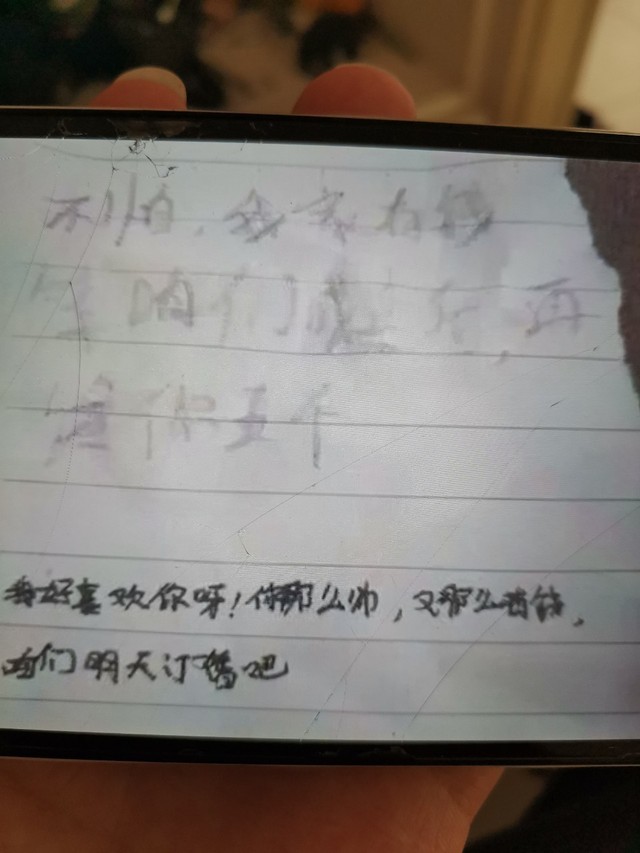 不怕，我家有钱
咱们 ，再
你五千
我好喜欢你呀！你那么帅，又那么有钱，
咱们明天订婚吧